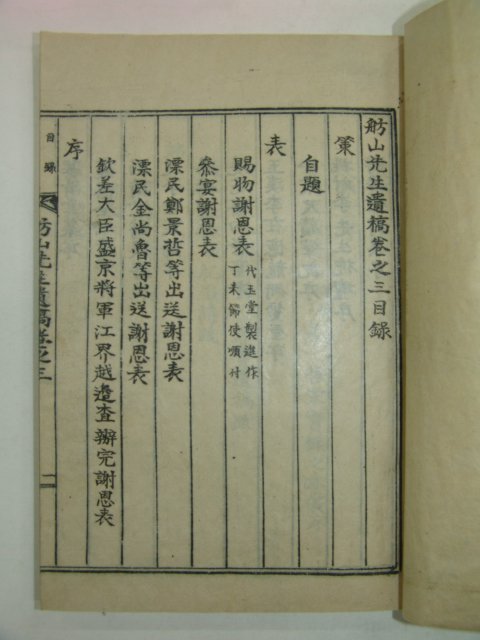 舫山先生遺稿卷之三目錄
策
自題
表
賜物謝恩表 代玉堂製進作
丁未節使順付
叅宴謝恩表
漂民鄭景哲等出送謝恩表
漂民金尚魯等出送謝恩表
欽差大臣盛京將軍江界越邊查辦完謝恩表
序
目錄
舫山先生遺稿卷之三
一